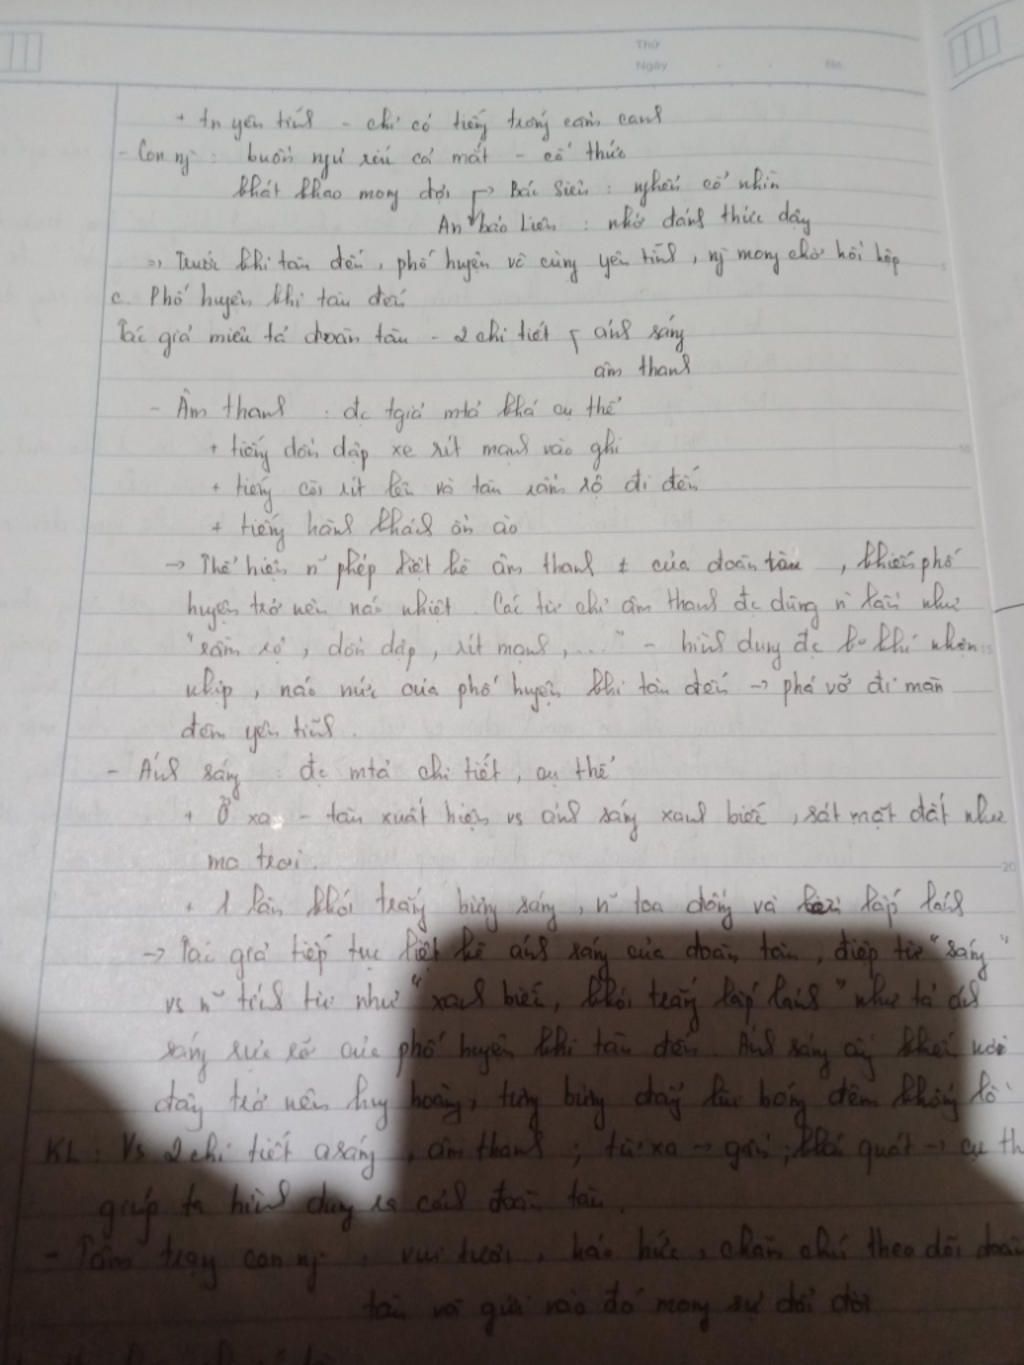 Thứ
Ngày No.
+ tn yên tĩnh - chỉ có tiếng trống cầm canh
- Con ng : buồn ngủ ríu cả mắt - cố thức
khát khao mong đợi → Bác Siêu : nghển cổ nhìn
An bảo Liên : nhớ đánh thức dậy
=> Trước khi tàu đến, phố huyện vô cùng yên tĩnh, ng mong chờ hồi hộp
c. Phố huyện khi tàu đến
Tác giả miêu tả đoàn tàu - 2 chi tiết { ánh sáng
âm thanh
- Âm thanh : đc tgiả mtả khá cụ thể
+ tiếng dồn dập xe rít mạnh vào ghi
+ tiếng còi rít lên và tàu rầm rộ đi đến
+ tiếng hành khách ồn ào
→ Thể hiện n~ phép liệt kê âm thanh của đoàn tàu, khiến phố
huyện trở nên náo nhiệt. Các từ chỉ âm thanh đc dùng n` lần như
"rầm rộ, dồn dập, rít mạnh, ..." - hình dung đc k0 khí nhộn
nhịp, náo nức của phố huyện khi tàu đến → phá vỡ đi màn
đêm yên tĩnh.
- Ánh sáng : đc mtả chi tiết, cụ thể
+ Ở xa - tàu xuất hiện vs ánh sáng xanh biếc, sát mặt đất như
ma trơi.
+ 1 làn khói trắng bừng sáng, n~ toa đồng và kền lấp lánh
→ Tác giả tiếp tục liệt kê ánh sáng của đoàn tàu, điệp từ "sáng"
vs n~ tính từ như "xanh biếc, khói trắng lấp lánh" như tả ánh
sáng rực rỡ của phố huyện khi tàu đến. Ánh sáng ấy khiến nơi
đây trở nên huy hoàng, tưng bừng đẩy lùi bóng đêm khổng lồ
KL : Vs 2 chi tiết a sáng, âm thanh ; từ xa → gần ; khái quát → cụ th
giúp ta hình dung ra cảnh đoàn tàu.
- Tâm trạng con ng : vui tươi, háo hức, chăm chú theo dõi đoàn
tàu và gửi vào đó mong sự đổi đời